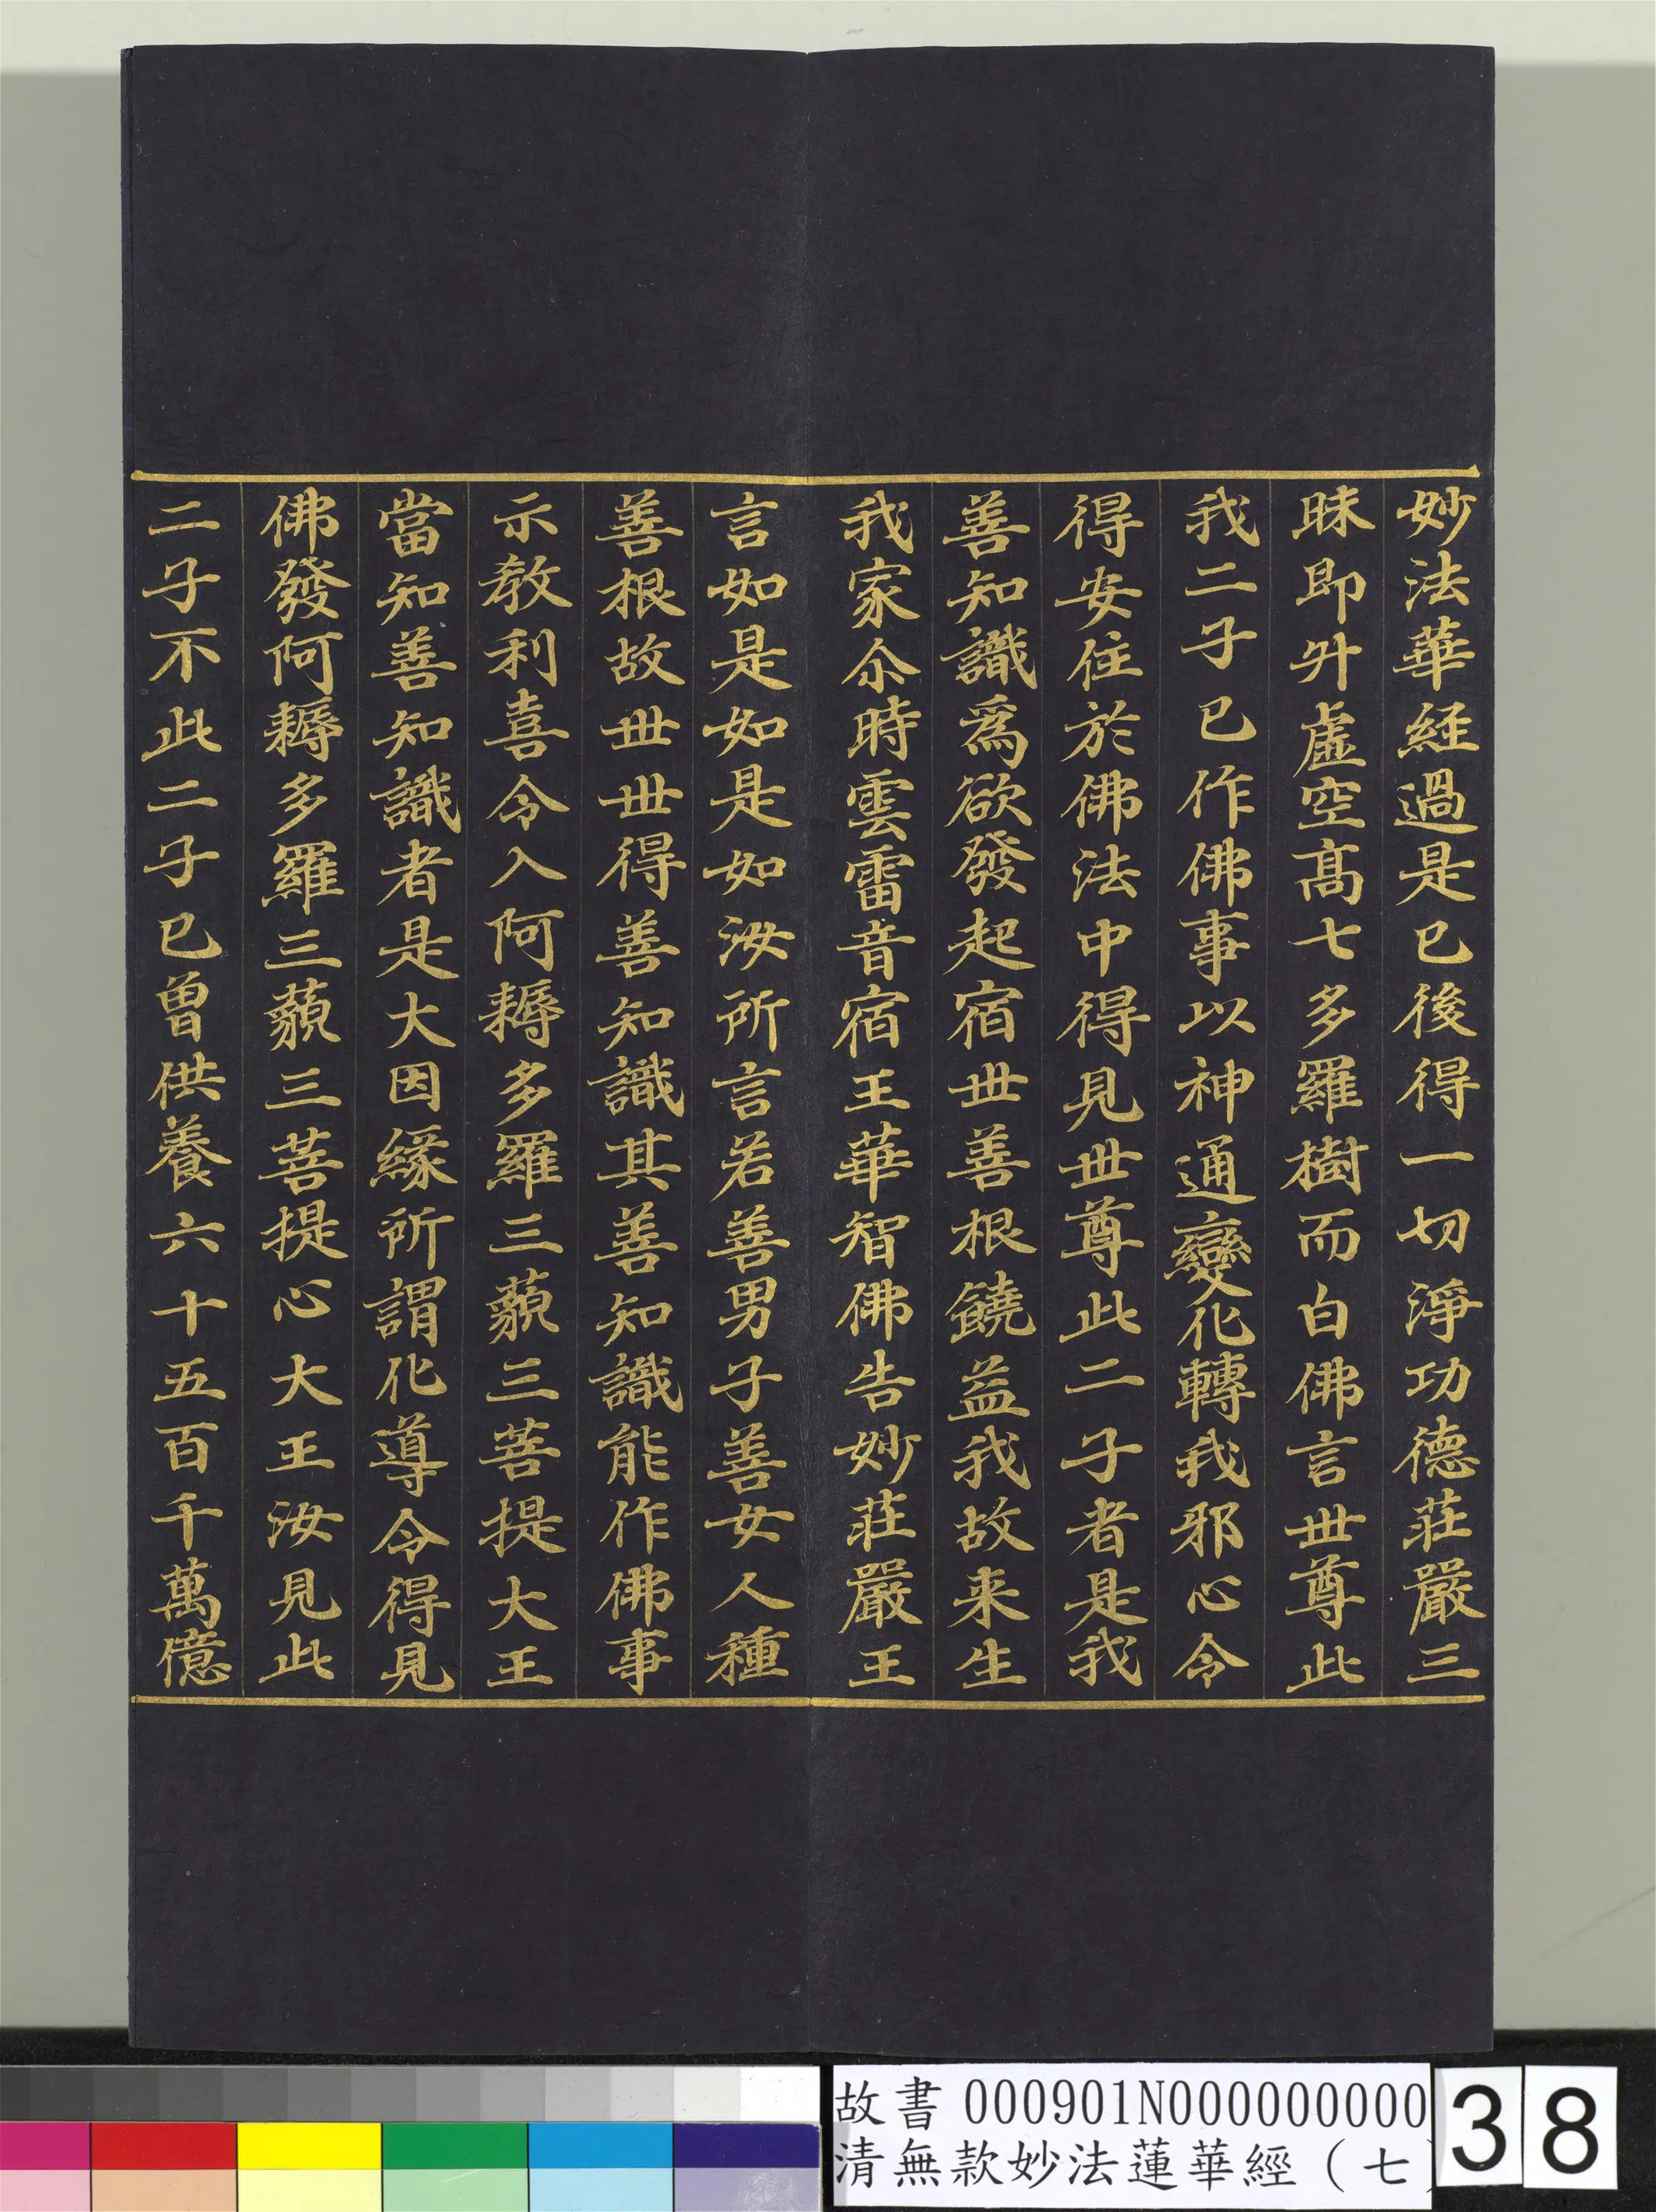 妙法華經過是已後得一切淨功德莊嚴三
昧即升虛空高七多羅樹而白佛言世尊此
我二子已作佛事以神通變化轉我邪心令
得安住於佛法中得見世尊此二子者是我
善知識為欲發起宿世善根饒益我故来生
我家尒時雲雷音宿王華智佛告妙莊嚴王
言如是如是如汝所言若善男子善女人種
善根故世世得善知識其善知識能作佛事
示教利喜令入阿耨多羅三藐三菩提大王
當知善知識者是大因緣所謂化導令得見
佛發阿耨多羅三藐三菩提心大王汝見此
二子不此二子已曾供養六十五百千萬億
故書 000901N000000000
清無款妙法蓮華經（七
38